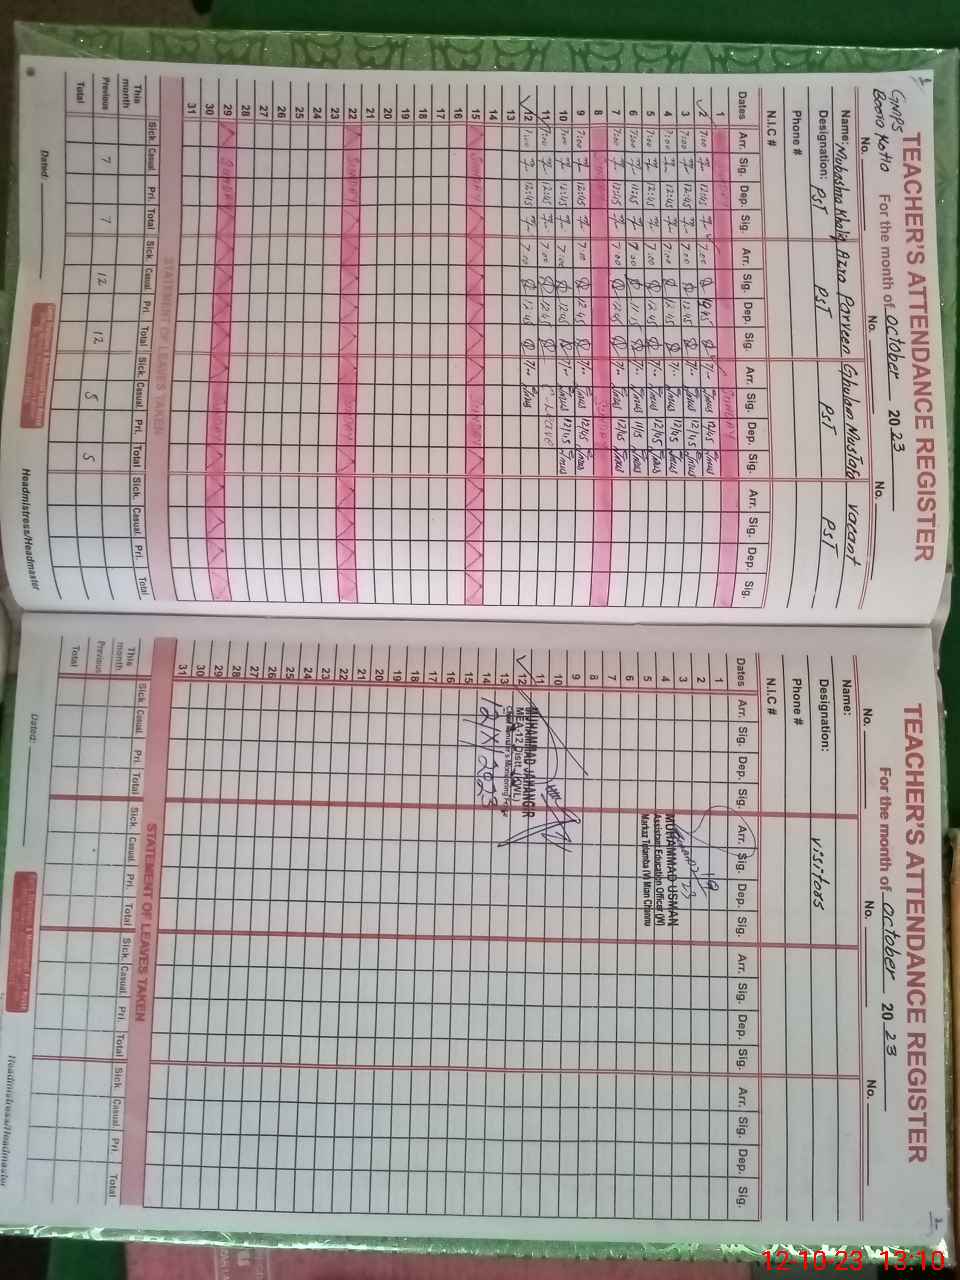 1
TEACHER'S ATTENDANCE REGISTER
GMPS
Boora Kotia For the month of October 2023
No. No. No.
Name: Mubashra Khaliq Azra Parveen Ghulam Mustafa vacant
Designation: PST PST PST PST
Phone #
N.I.C #
Dates Arr. Sig. Dep. Sig. Arr. Sig. Dep. Sig. Arr. Sig. Dep. Sig. Arr. Sig. Dep. Sig.
1 SUNDAY
2 7:00 12:45 7:00 12:45 7/- 12/45
3 7:00 12:45 7:00 12:45 7/- 12/45
4 7:00 12:45 7:00 12:45 7/- 12/45
5 7:00 12:45 7:00 12:45 7/- 12/45
6 7:00 11:15 7:00 11:15 7/- 11/15
7 7:00 12:45 7:00 12:45 7/- 12/45
8 SUNDAY
9 7:00 12:45 7:00 12:45 7/- 12/45
10 7:00 12:45 7:00 12:45 7/- 12/45
11 7:00 12:45 7:00 12:45 C-Leave
12 7:00 12:45 7:00 12:45 7/-
13
14
15 SUNDAY
16
17
18
19
20
21
22 SUNDAY
23
24
25
26
27
28
29 SUNDAY
30
31
STATEMENT OF LEAVES TAKEN
Sick. Casual. Pri. Total Sick. Casual. Pri. Total Sick. Casual. Pri. Total Sick. Casual. Pri. Total
This month
Previous 7 7 12 12 5 5
Total
Dated:
Headmistress/Headmaster
2
TEACHER'S ATTENDANCE REGISTER
For the month of October 2023
No. No. No.
Name:
Designation: visitors
Phone #
N.I.C #
Dates Arr. Sig. Dep. Sig. Arr. Sig. Dep. Sig. Arr. Sig. Dep. Sig. Arr. Sig. Dep. Sig.
1
2
3
4
5
6
7
8
9
10
11
12
13
14
15
16
17
18
19
20
21
22
23
24
25
26
27
28
29
30
31
MUHAMMAD USMAN
Assistant Education Officer (M)
Markaz Tulamba (V) Mian Channu
MUHAMMAD JAHANGIR
MEA-12 Distt. (KWL)
Chief Minister's Monitoring Force
12/X/2023
STATEMENT OF LEAVES TAKEN
Sick. Casual. Pri. Total Sick. Casual. Pri. Total Sick. Casual. Pri. Total Sick. Casual. Pri. Total
This month
Previous
Total
Dated:
Headmistress/Headmaster
12-10-23 13:10